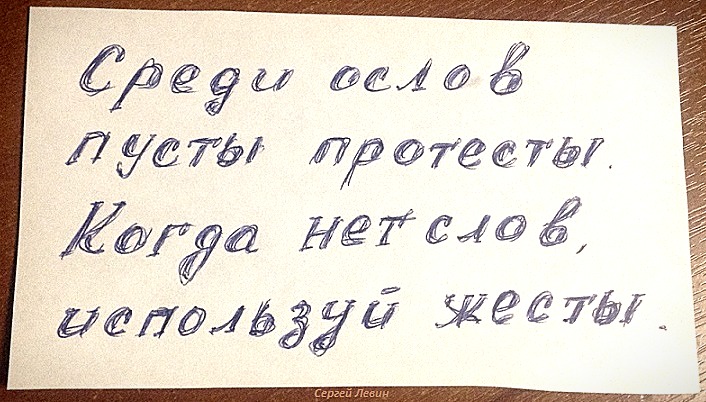 Среди ослов
пусты протесты.
Когда нет слов,
используй жесты.
Сергей Левин